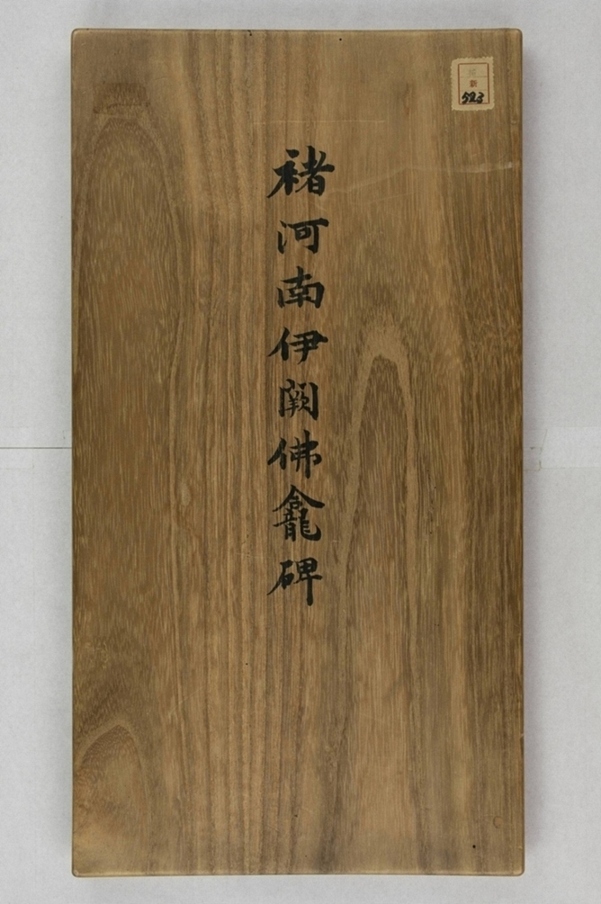 褚河南伊闕佛龕碑
523